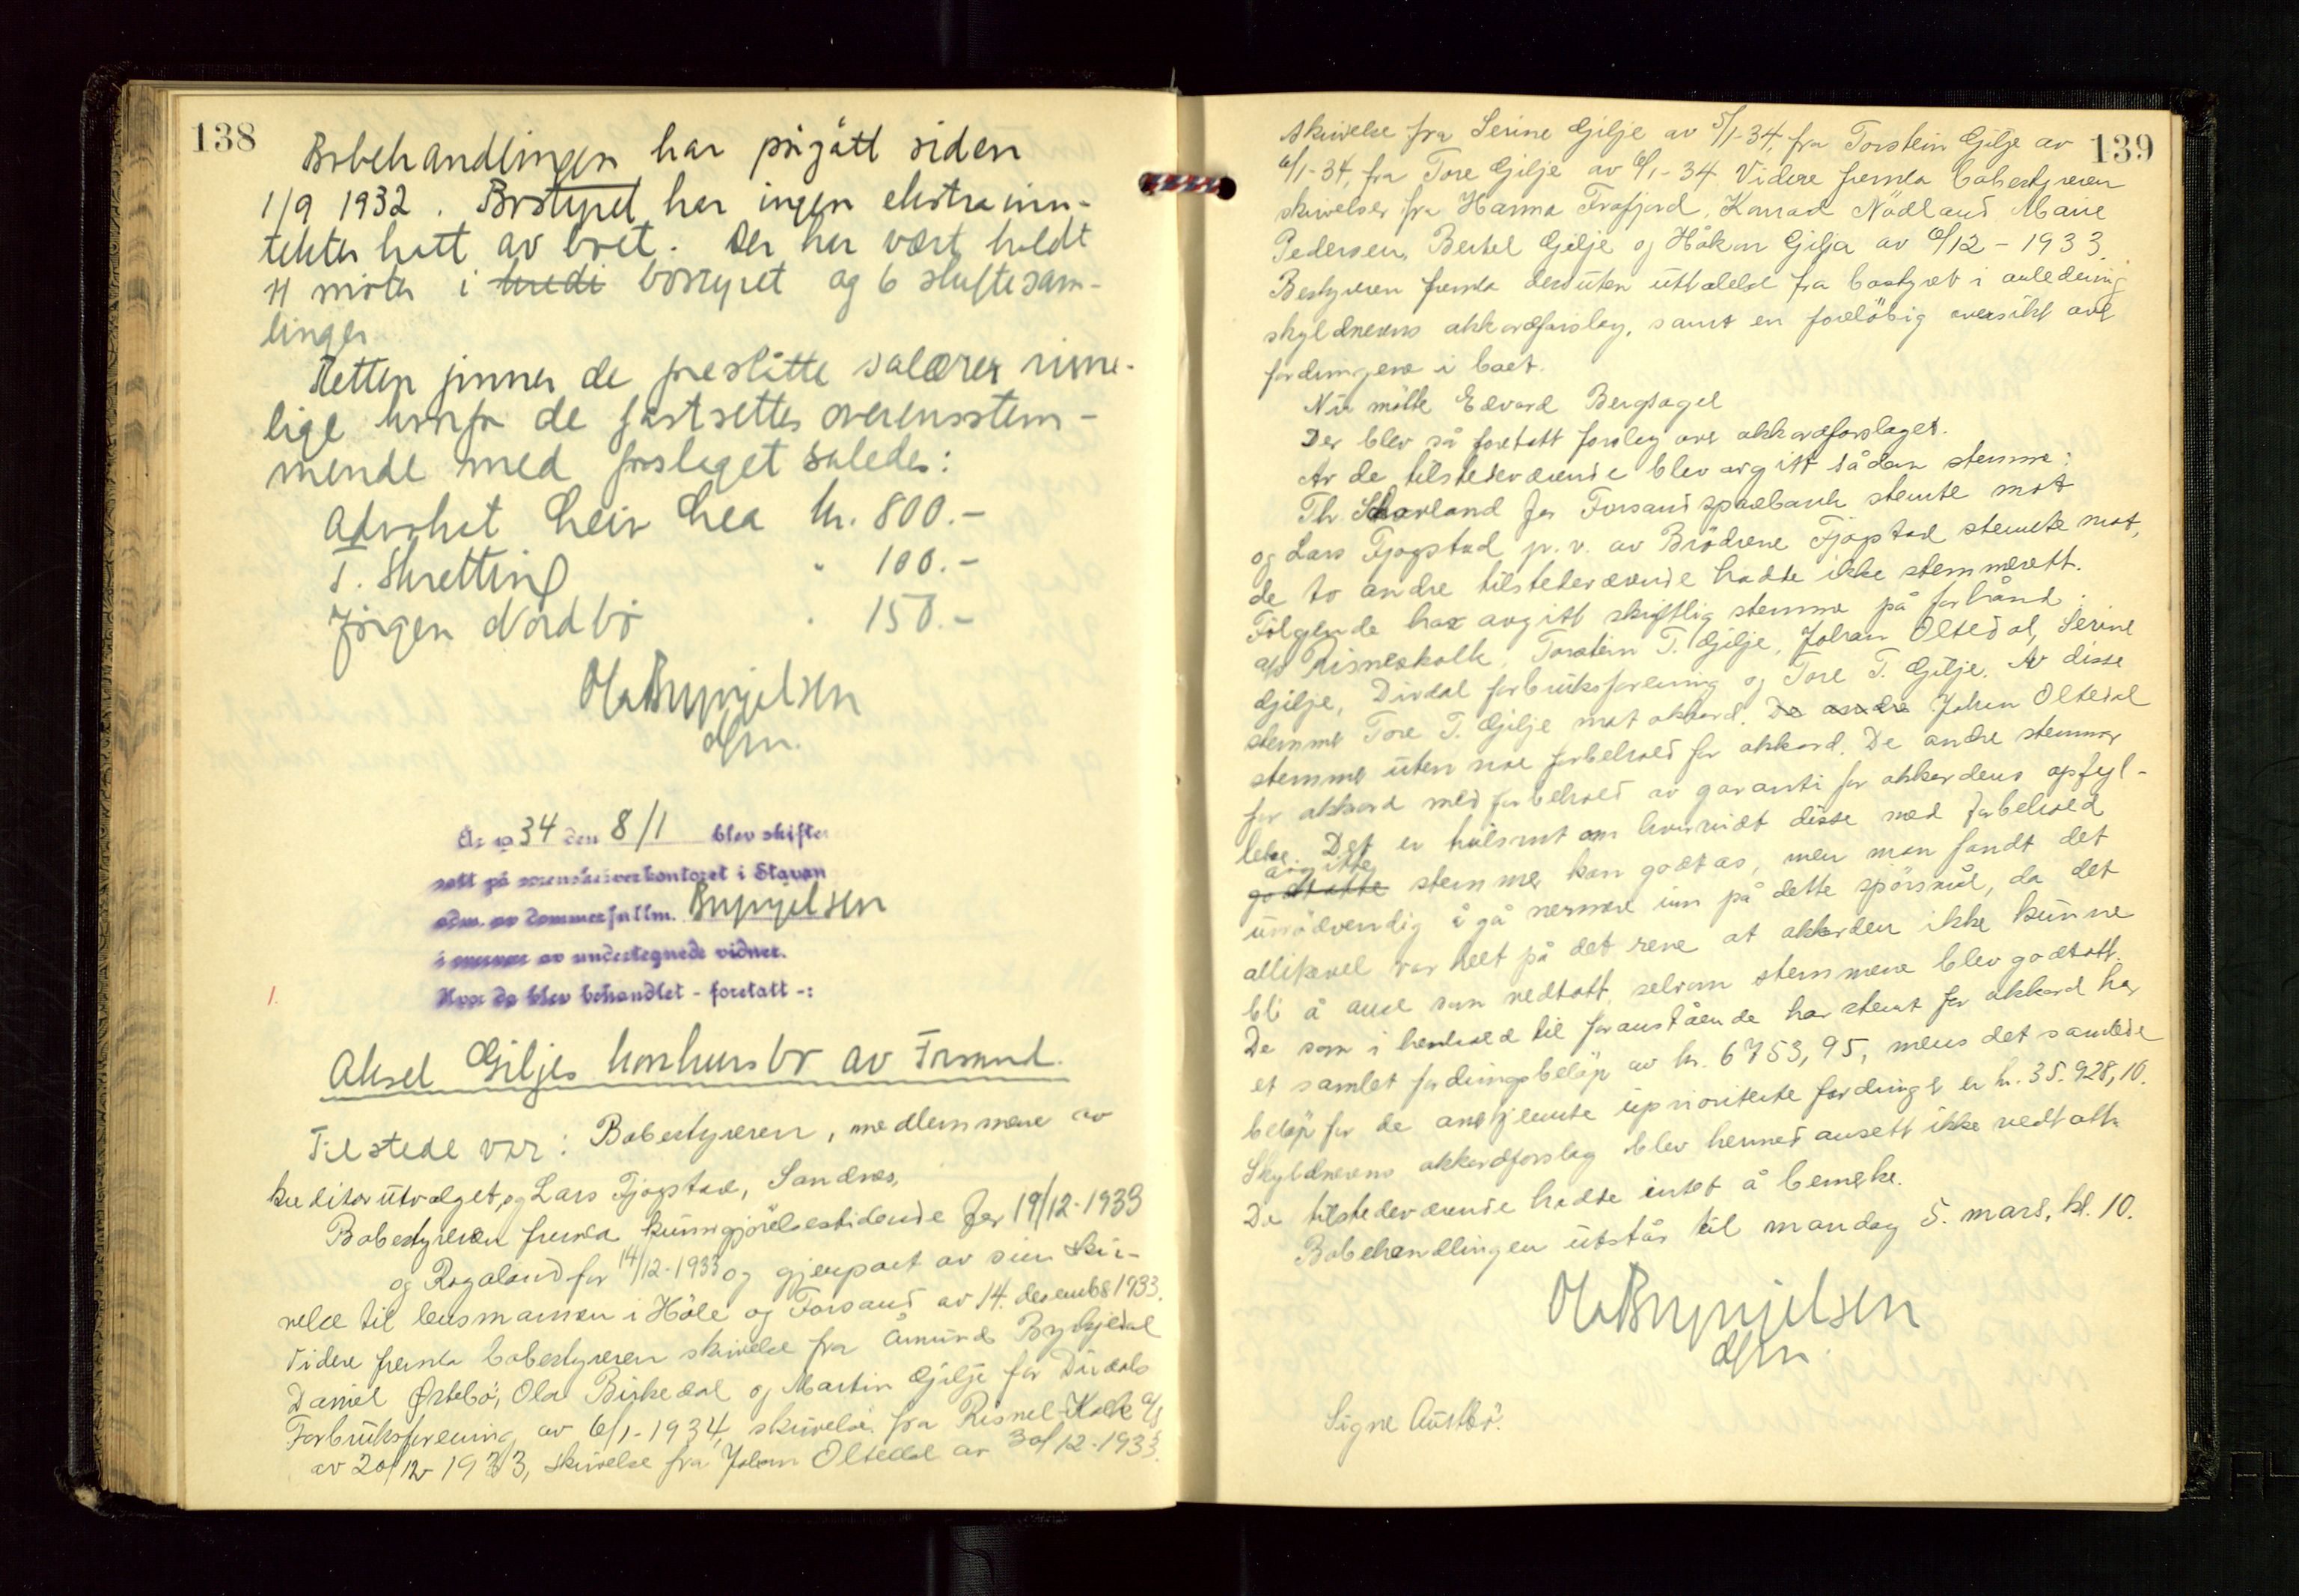 138
Bobehandlingen har pågått siden
1/9 1932. Bostyret har ingen ekstrainn-
tekter hatt av boet. Der har vært holdt
11 møter i bostyret og 6 skiftesam-
linger.
Retten finner de foreslåtte salærer rime-
lige hvorfor de fastsettes overensstem-
mende med forslaget således:
Advokat Leiv Lea kr. 800.-
T. Skretting " 100.-
Jörgen Nordbö " 150.-
Ola Brynjelsen
dfm.
År 1934 den 8/1 blev skifte-
rett på sorenskriverkontoret i Stavan
adm. av dommerfullm. Brynjelsen
i nærvær av undertegnede vidner.
Hvor da blev behandlet - foretatt -:
1.
Aksel Giljes konkursbo av Forsand.
Tilstede var: Bobestyreren, medlemmene av
kreditorutvalget, og Lars Fjogstad, Sandnes,
Bobestyreren fremla kunngjörelsestidende for 19/12-1933
og Rogaland for 14/12-1933 og gjenpart av sien skri-
velse til lensmannen i Höle og Forsand av 14. desember 1933.
Videre fremla bobestyreren skrivelse fra Åmund Byrkjedal
Daniel Örtebö, Ola Birkedal og Martin Gilje for Dirdals
Forbruksforening av 6/1-1934, skrivelse fra Risnes-Kolk a/s
av 20/12-1933, skrivelse fra Johan Oltedal av 30/12-1933.
139
skrivelse fra Serine Gilje av 5/1-34, fra Torstein Gilje av
6/1-34, fra Tore Gilje av 6/1-34. Videre fremla bobestyreren
skrivelser fra Hanna Frafjord, Konrad Nödland Marie
Pedersen, Bertel Gilje og Håkon Gilja av 6/12-1933.
Bestyreren fremla desuten uttalelse fra bostyret i anledning
skyldnerens akkordforslag, samt en foreløbig oversikt over
fordringene i boet.
Nu mötte Edvard Bergsagel
Der blev så foretatt forslag over akkordforslaget.
Av de tilstedeværende blev avgitt sådan stemme:
Th. Skarland for Forsand sparebank stemte mot
og Lars Fjogstad p. v. av Brödrene Fjogstad stemte mot,
de to andre tilstedeværende hadde ikke stemmerett.
Fölgende har avgitt skriftlig stemme på forhånd:
a/s Risneskolk, Torstein T. Gilje, Johan Oltedal, Serine
Gilje, Dirdal forbruksforening og Tore T. Gilje. Av disse
stemmer Tore T. Gilje mot akkord. De andre Johan Oltedal
stemmer uten noe forbehold for akkord. De andre stemmer
for akkord med forbehold av garanti for akkordens opfyl-
lelse. Det er tvilsomt om hvorvidt disse med forbehold
avgitte
godtatte stemmer kan godtas, men man fandt det
unödvendig å gå nærmere inn på dette spörsmål, da det
allikevel var helt på det rene at akkorden ikke kunne
bli å anse som vedtatt, selvom stemmene blev godtatt.
De som i henhold til foranstående har stemt for akkord har
et samlet fordringsbelöp av kr. 6753,95, mens det samlede
belöp for de anerkjente uprioriterte fordringer er kr. 35.928,10.
Skyldnerens akkordforslag blev hermed ansett ikke vedtatt.
De tilstedeværende hadde intet å bemerke.
Bobehandlingen utstår til mandag 5. mars, kl. 10.
Ola Brynjelsen
dfm.
Signe Austbö.